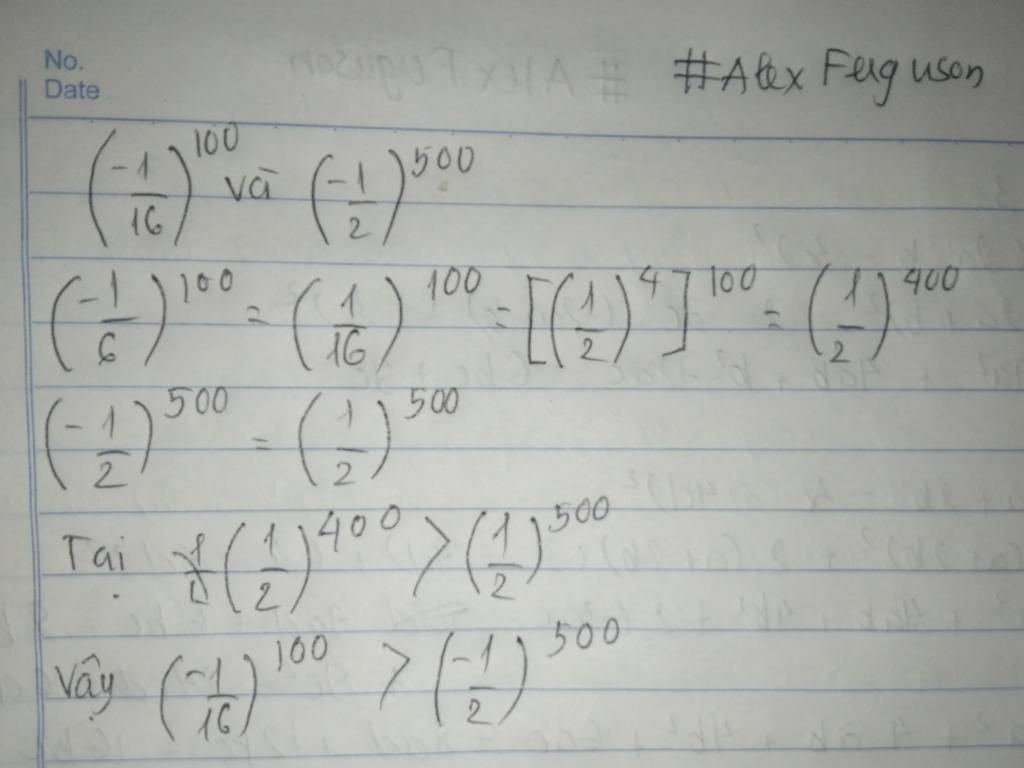 No.
Date
#Alex Ferguson
(-1/16)^100 và (-1/2)^500
(-1/6)^100 = (1/16)^100 = [(1/2)^4]^100 = (1/2)^400
(-1/2)^500 = (1/2)^500
Tại (1/2)^400 > (1/2)^500
Vậy (-1/16)^100 > (-1/2)^500